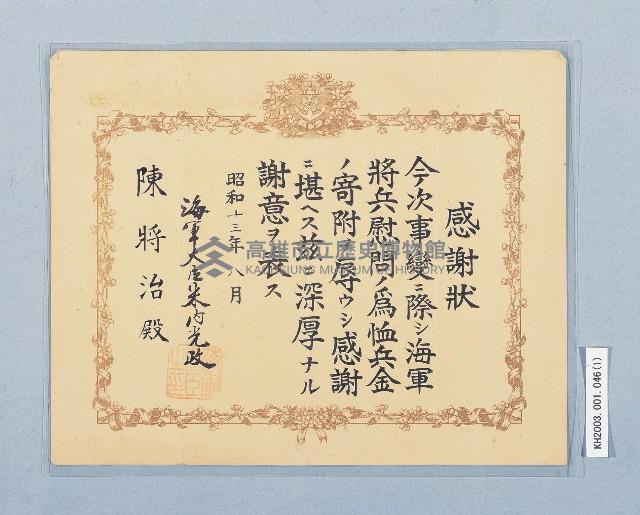 感謝狀
今次事變ニ際シ海軍
將兵慰問ノ爲恤兵金
ノ寄附ヲ辱ウシ感謝
ニ堪ヘス茲ニ深厚ナル
謝意ヲ表ス
昭和十三年八月
海軍大臣米内光政
陳將治殿
高雄市立歷史博物館
KAOHSIUNG MUSEUM OF HISTORY
KH2003.001.046(1)